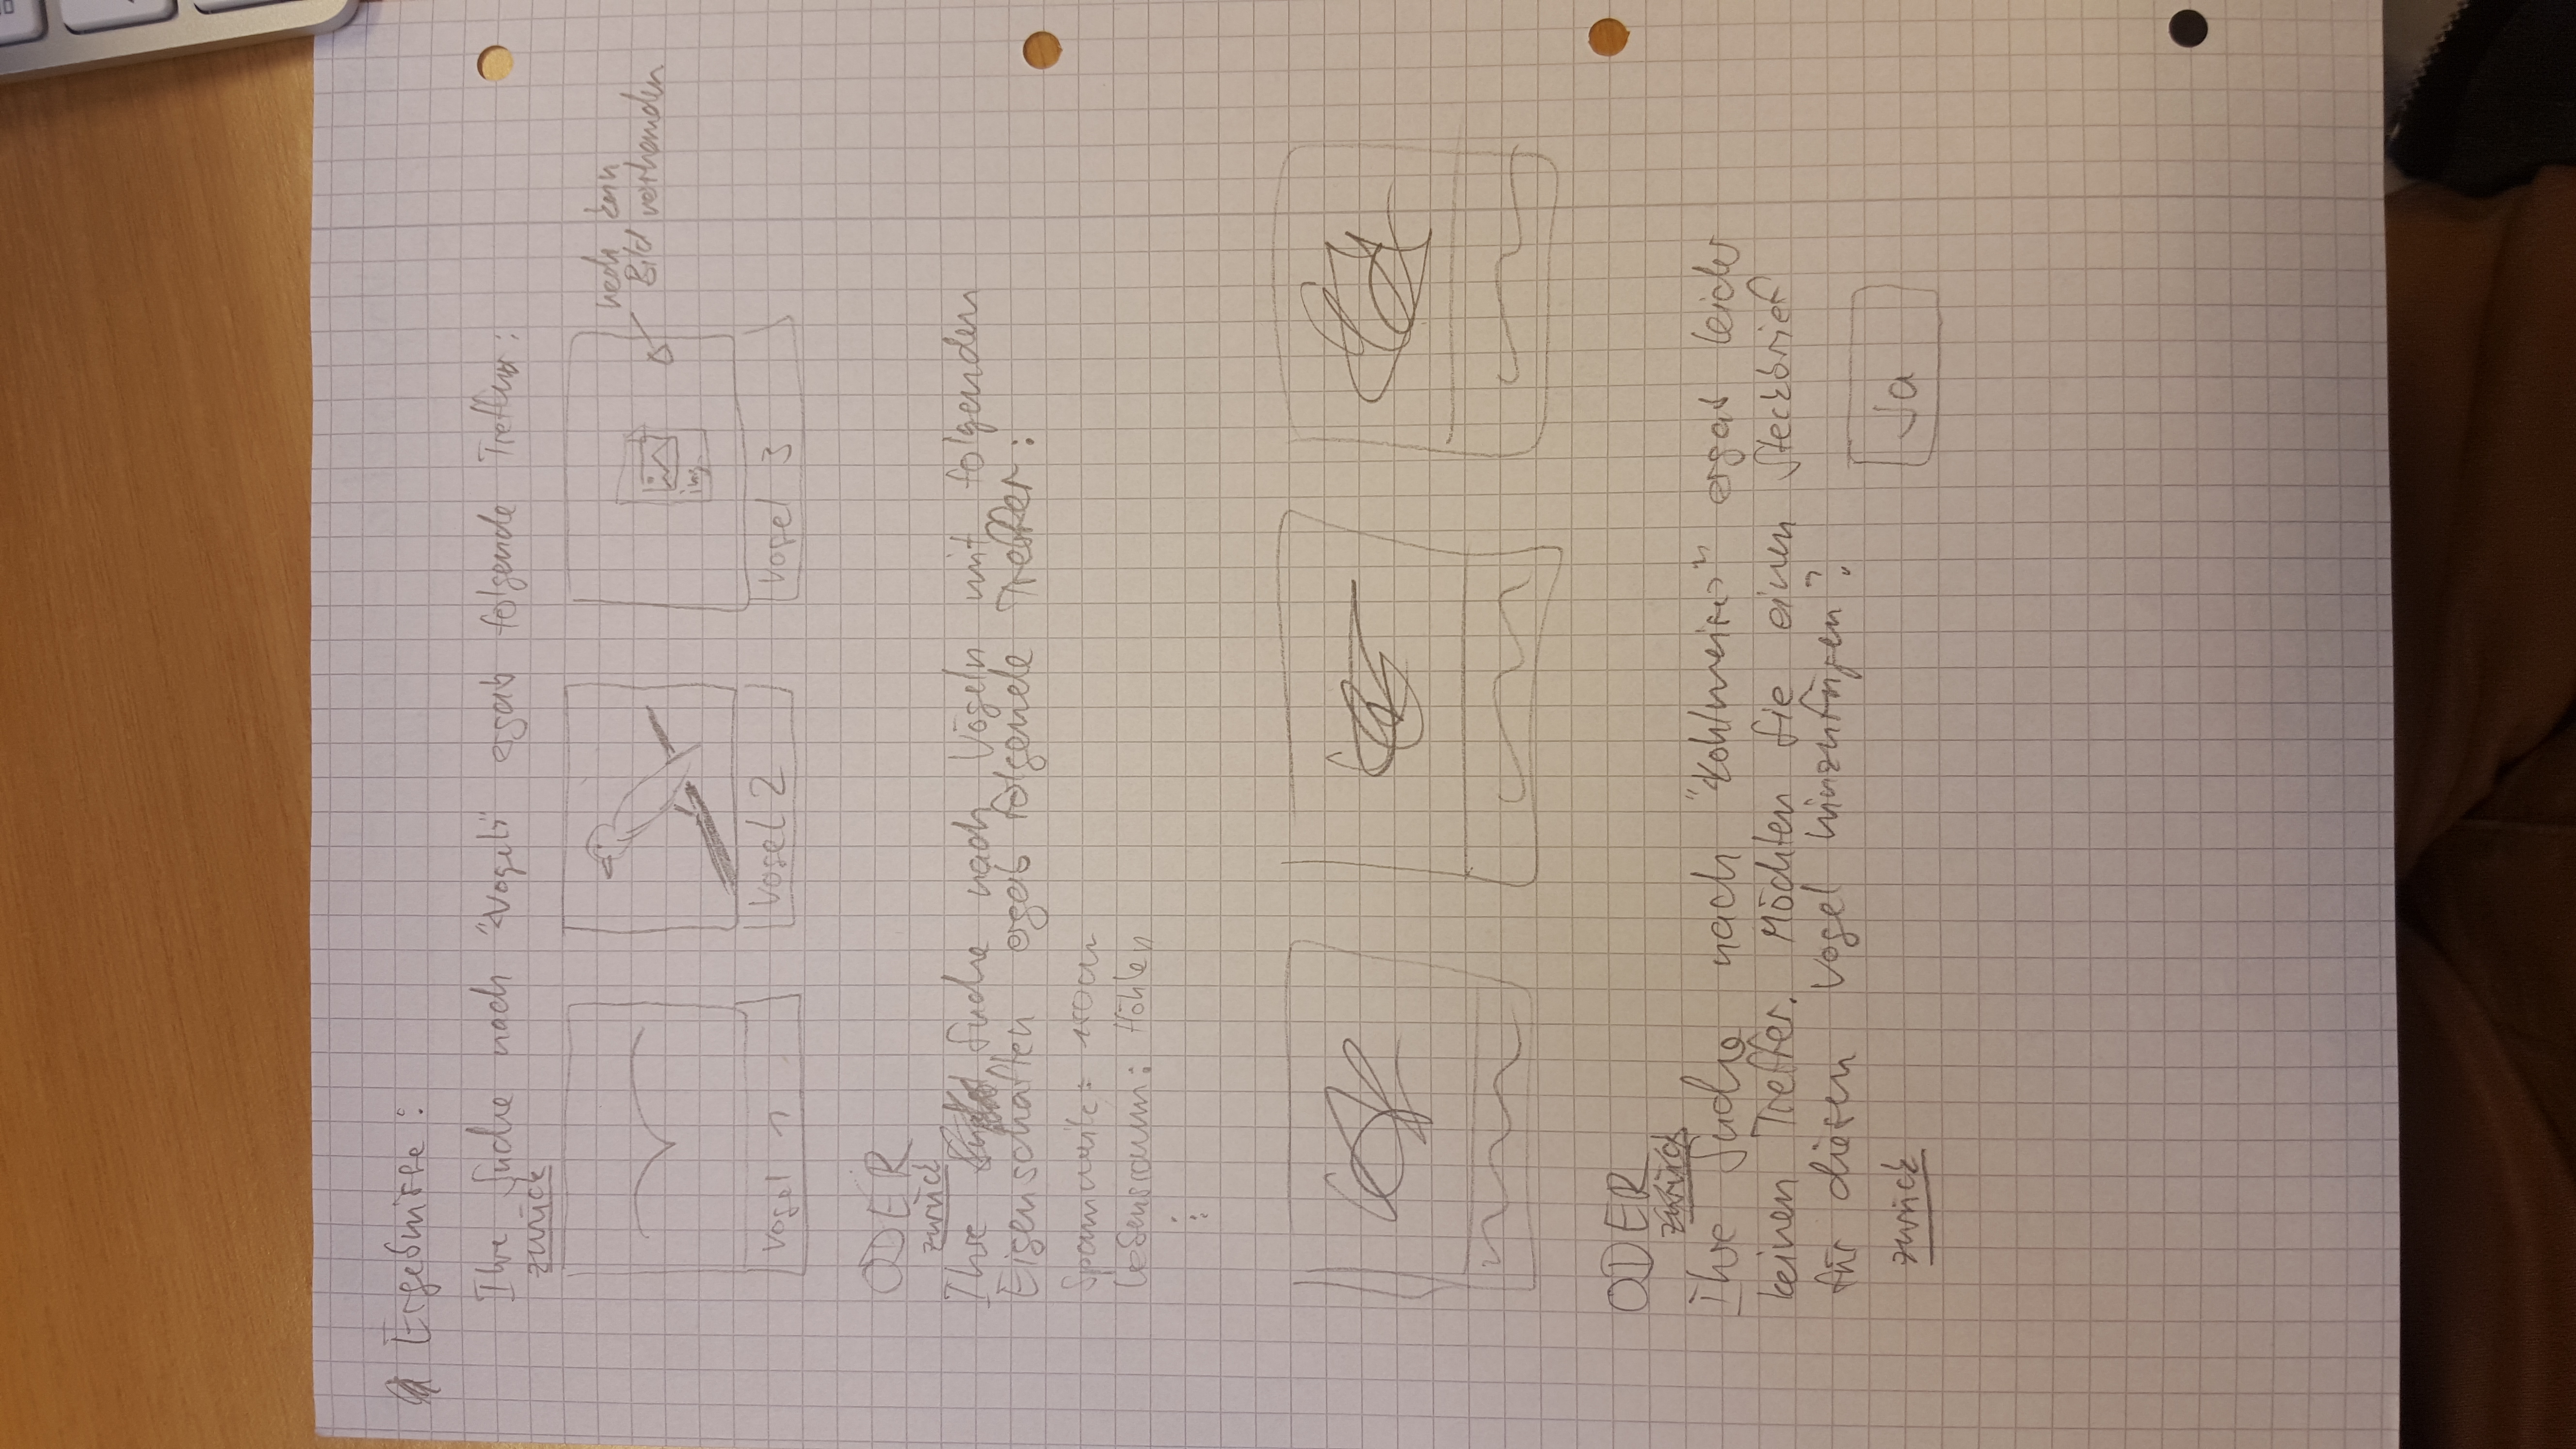 Ergebnisse:
Ihre Suche nach "<Vogel>" ergab folgende Treffer:
zurück
noch kein
Bild vorhanden
img.
Vogel 1
Vogel 2
Vogel 3
ODER
zurück
Ihre Suche nach Vögeln mit folgenden
Eigenschaften ergab folgende Treffer:
Spannweite: 150cm
Lebensraum: Höhlen
⋮
ODER
zurück
Ihre Suche nach "<Kohlmeise>" ergab leider
keinen Treffer. Möchten Sie einen Steckbrief
für diesen Vogel hinzufügen?
zurück
Ja